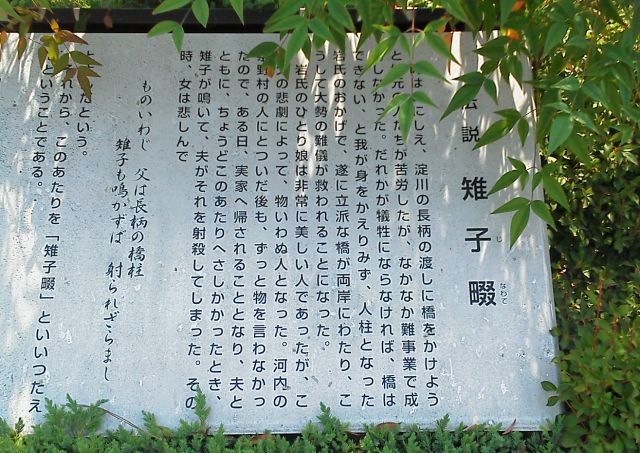 伝説 雉子畷
じ なわて
は にしえ、淀川の長柄の渡しに橋をかけよう
と 元 たちが苦労したが、なかなか難事業で成
しなかった。だれかが犠牲にならなければ、橋は
できない、と我が身をかえりみず、人柱となった
岩氏のおかげで、遂に立派な橋が両岸にわたり、こ
うして大勢の難儀が救われることになった。
岩氏のひとり娘は非常に美しい人であったが、こ
の悲劇によって、物いわぬ人となった。河内の
野村の人にとついだ後も、ずっと物を言わなかっ
たので、ある日、実家へ帰されることとなり、夫と
ともに、ちょうどこのあたりへさしかかったとき、
雉子が鳴いて、夫がそれを射殺してしまった。その
時、女は悲しんで
ものいわじ 父は長柄の橋柱
雉子も鳴かずば 射られざらまし
と たという。
れから、このあたりを「雉子畷」といいつたえ
ということである。